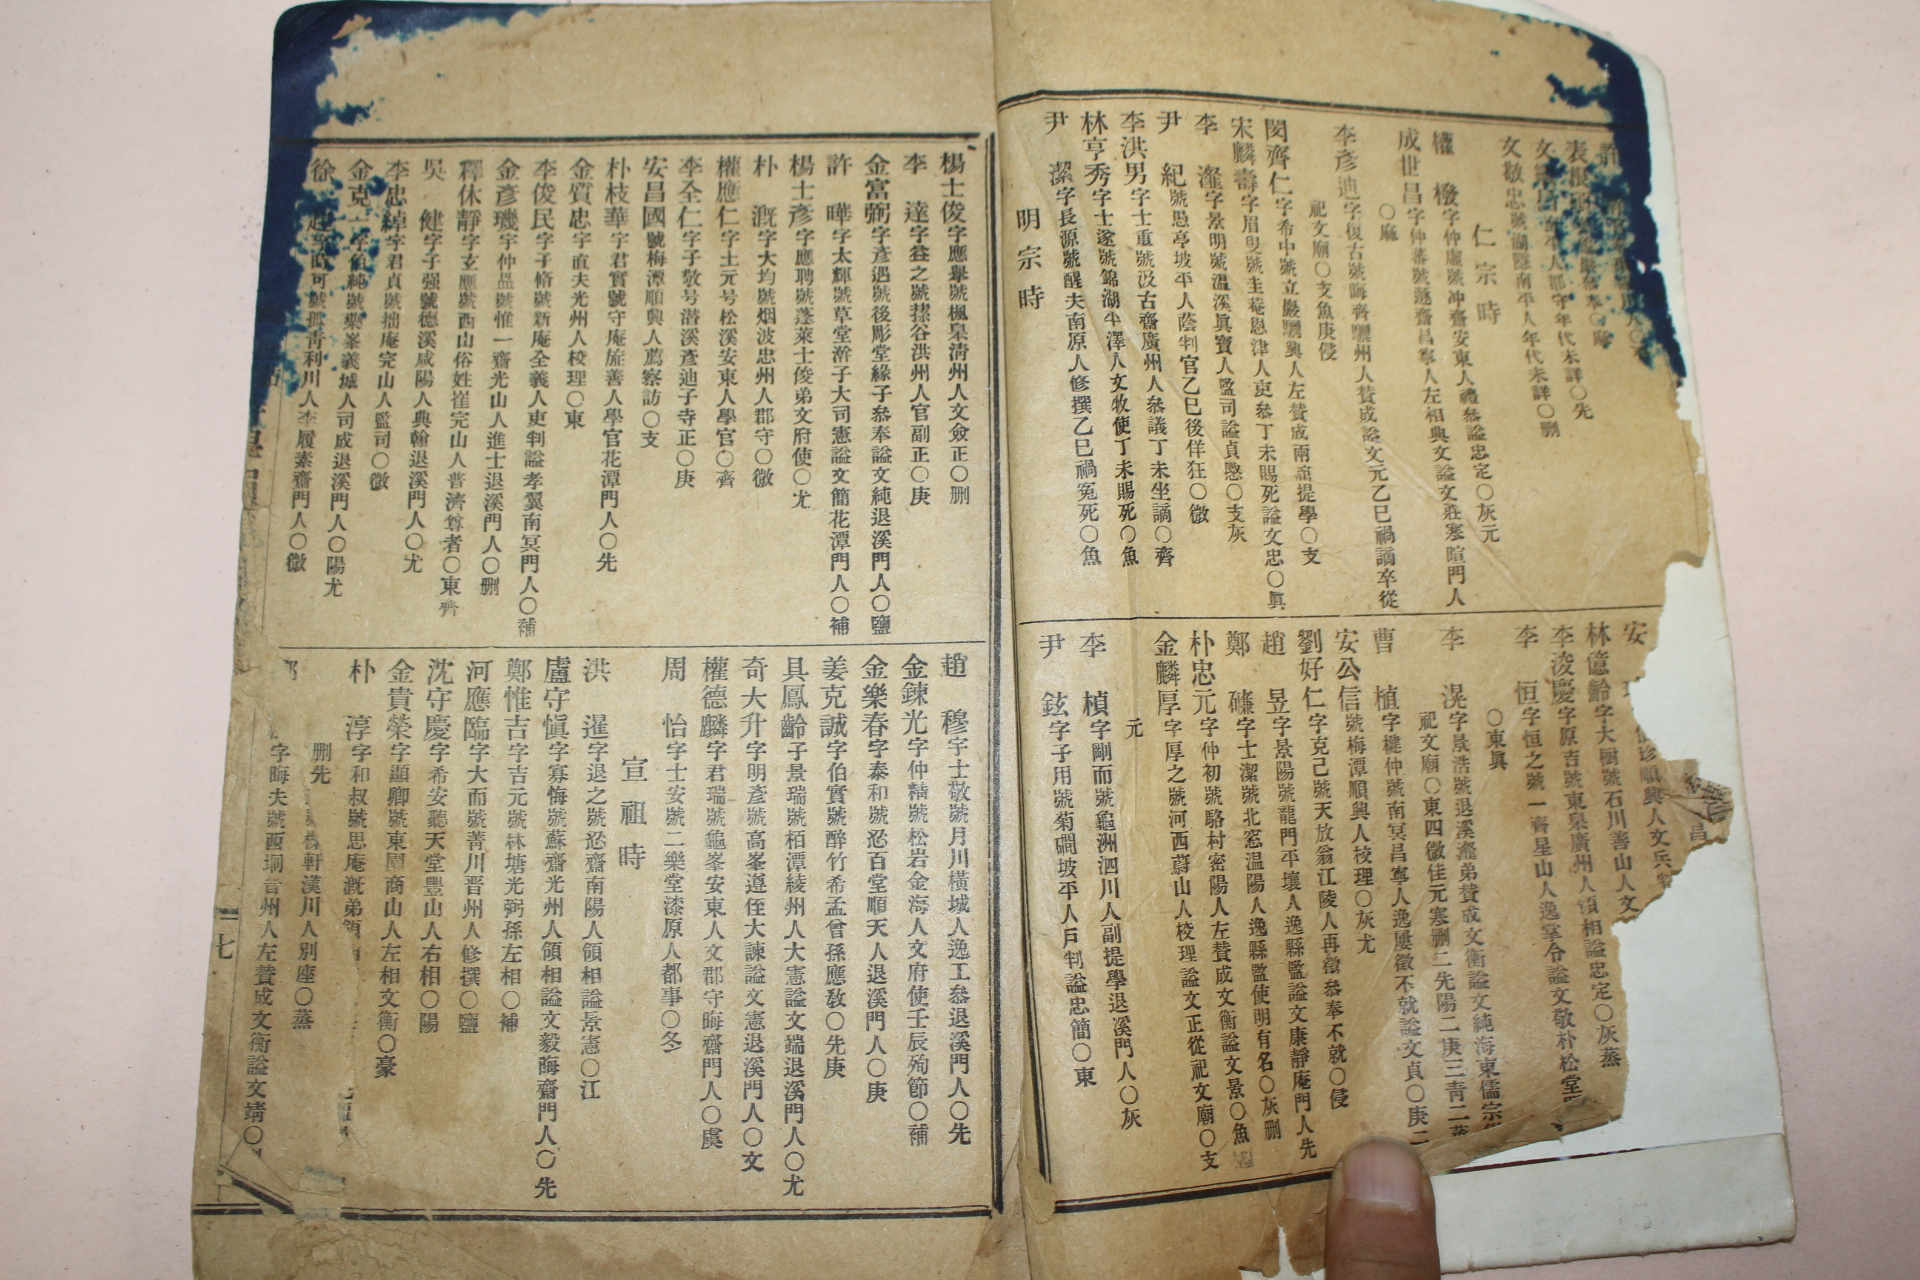 文敏忠號湖隱南平人年代未詳〇删
仁宗時
權 橃字仲虛號冲齋安東人禮叅謚忠定〇灰元
成世昌字仲蕃號遯齋昌寧人左相典文謚文莊寒暄門人
〇麻
李彥迪字復古號晦齋驪州人贊成謚文元乙巳禍謫卒從
祀文廟〇支魚庚侵
閔齊仁字希中號立巖驪興人左贊成兩舘提學〇支
宋麟壽字眉叟號圭菴恩津人吏叅丁未賜死謚文忠〇眞
李 瀣字景明號溫溪眞寶人監司謚貞愍〇支灰
尹 紀號愚亭坡平人蔭判官乙巳後佯狂〇微
李洪男字士重號汲古齋廣州人叅議丁未坐謫〇齊
林亨秀字士遂號錦湖平澤人文牧使丁未賜死〇魚
尹 潔字長源號醒夫南原人修撰乙巳禍寃死〇魚
明宗時
林億齡字大樹號石川善山人文
李浚慶字原吉號東臯廣州人領相謚忠定〇灰蒸
李 恒字恒之號一齋星山人逸掌令謚文敬朴松堂
〇東眞
李 滉字景浩號退溪瀣弟贊成文衡謚文純海東儒宗從
祀文廟〇東四微佳元寒删二先陽二庚三靑二蒸
曹 植字楗仲號南冥昌寧人逸屢徵不就謚文貞〇庚二
安公信號梅潭順興人校理〇灰尤
劉好仁字克己號天放翁江陵人再徵叅奉不就〇侵
趙 昱字景陽號龍門平壤人逸縣監謚文康靜庵門人先
鄭 𥖝字士潔號北窓温陽人逸縣監使明有名〇灰删
朴忠元字仲初號駱村密陽人左贊成文衡謚文景〇魚
金麟厚字厚之號河西蔚山人校理謚文正從祀文廟〇支
元
李 楨字剛而號龜洲泗川人副提學退溪門人〇灰
尹 鉉字子用號菊磵坡平人戶判謚忠簡〇東
楊士俊字應擧號楓臯淸州人文僉正〇删
李 達字益之號蓀谷洪州人官副正〇庚
金富弼字彥遇號後彫堂緣子叅奉謚文純退溪門人〇鹽
許 曄字太輝號草堂澣子大司憲謚文簡花潭門人〇補
楊士彥字應聘號蓬萊士俊弟文府使〇尤
朴 漑字大均號烟波忠州人郡守〇微
權應仁字士元号松溪安東人學官〇齊
李全仁字子敬号潜溪彥迪子寺正〇庚
安昌國號梅潭順興人薦察訪〇支
朴枝華字君實號守庵旌善人學官花潭門人〇先
金質忠字直夫光州人校理〇東
李俊民字子脩號新庵全義人吏判謚孝翼南冥門人〇補
金彥璣字仲昷號惟一齋光山人進士退溪門人〇删
釋休靜字玄應號西山俗姓崔完山人普濟尊者〇東齊
吳 健字子强號德溪咸陽人典翰退溪門人〇尤
李忠綽字君貞號拙庵完山人監司〇微
金克一字伯純號藥峯義城人司成退溪門人〇陽尤
徐 起字待可號孤靑利川人李履素齋門人〇微
趙 穆字士敬號月川橫城人逸工叅退溪門人〇先
金鍊光字仲精號松岩金海人文府使壬辰殉節〇補
金樂春字泰和號忍百堂順天人退溪門人〇庚
姜克誠字伯實號醉竹希孟曾孫應敎〇先庚
具鳳齡子景瑞號栢潭綾州人大憲謚文端退溪門人〇尤
奇大升字明彥號高峯遵侄大諫謚文憲退溪門人〇文
權德麟字君瑞號龜峯安東人文郡守晦齋門人〇虞
周 怡字士安號二樂堂漆原人都事〇冬
宣祖時
洪 暹字退之號忍齋南陽人領相謚景憲〇江
盧守愼字寡悔號蘇齋光州人領相謚文毅晦齋門人〇先
鄭惟吉字吉元號林塘光弼孫左相〇補
河應臨字大而號菁川晋州人修撰〇鹽
沈守慶字希安聽天堂豐山人右相〇陽
金貴榮字顯卿號東園商山人左相文衡〇豪
朴 淳字和叔號思庵漑弟領
删先
軒漢川人別座〇蒸
字晦夫號西坰晋州人左贊成文衡謚文靖〇
七